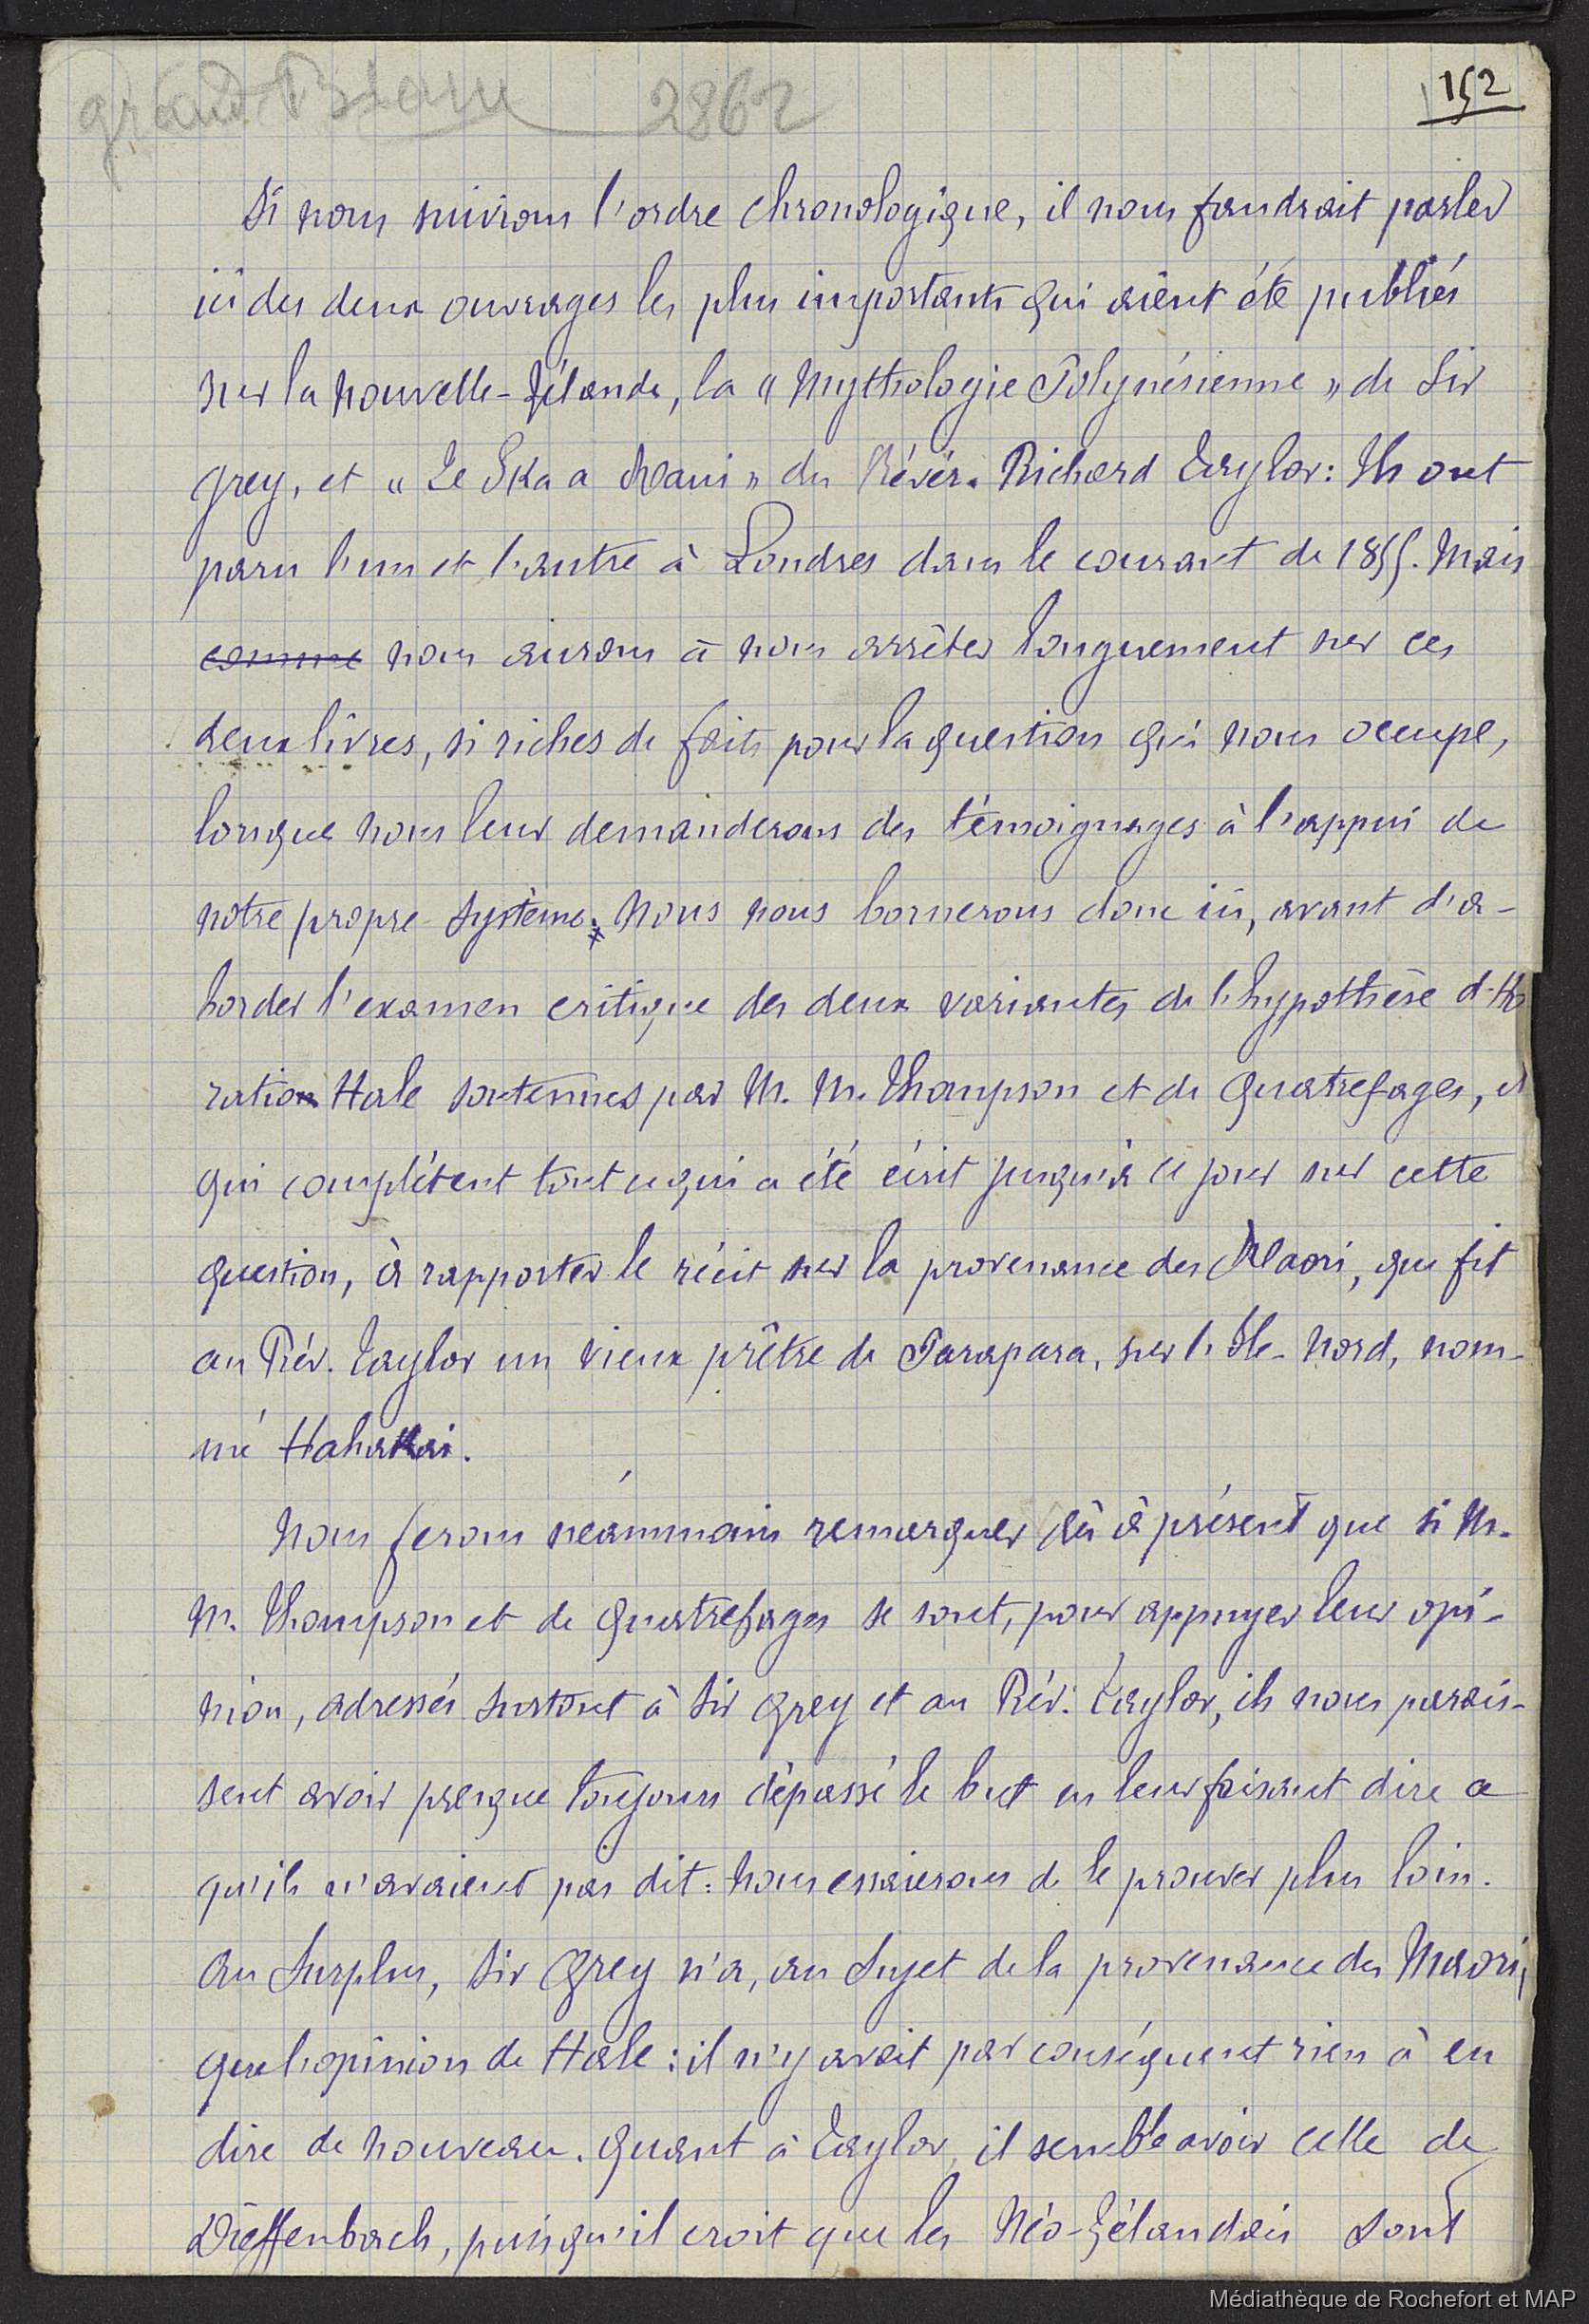 grand Blanc 2862
152
Si nous suivions l'ordre chronologique, il nous faudrait parler
ici des deux ouvrages les plus importants qui aient été publiés
sur la Nouvelle-Zélande, la « Mythologie Polynésienne » de Sir
Grey, et « Te Ika a Maui » du Révér. Richard Taylor: Ils ont
paru l'un et l'autre à Londres dans le courant de 1855. Mais
comme nous aurons à nous arrêter longuement sur ces
deux livres, si riches de faits pour la question qui nous occupe,
lorsque nous leur demanderons des témoignages à l'appui de
notre propre système. Nous nous bornerons donc ici, avant d'a-
border l'examen critique des deux variantes de l'hypothèse d'Ho
ration Hale soutenues par M. M. Thompson et de Quatrefages, et
qui complètent tout ce qui a été écrit jusqu'à ce jour sur cette
question, à rapporter le récit sur la provenance des Maori, que fit
au Rév. Taylor un vieux prêtre de Parapara, sur l'Ile-Nord, nom-
mé Hahakai.
Nous ferons néanmoins remarquer dès à présent que si M.
M. Thompson et de Quatrefages se sont, pour appuyer leur opi-
nion, adressés surtout à Sir Grey et au Rév. Taylor, ils nous parais-
sent avoir presque toujours dépassé le but en leur faisant dire ce
qu'ils n'avaient pas dit: Nous essaierons de le prouver plus loin.
Au surplus, Sir Grey n'a, au sujet de la provenance des Maori,
que l'opinion de Hale: il n'y avait par conséquent rien à en
dire de nouveau. Quant à Taylor, il semble avoir celle de
Dieffenbach, puisqu'il croit que les Néo-Zélandais sont
Médiathèque de Rochefort et MAP